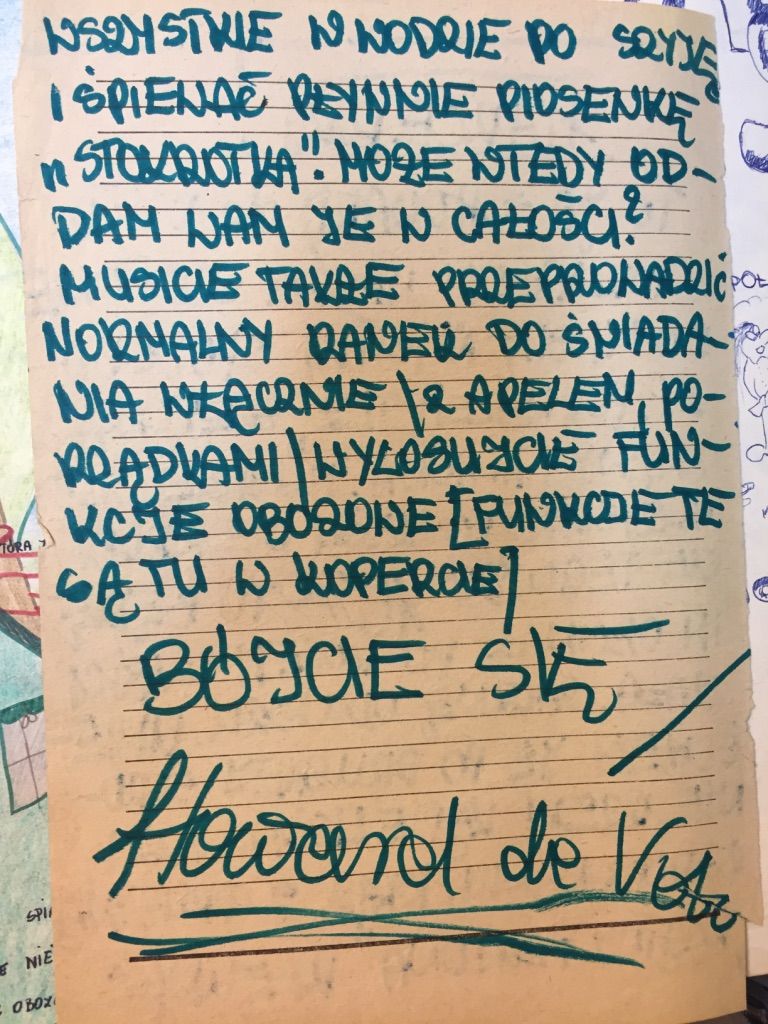 WSZYSTKIE W WODZIE PO SZYJĘ
I ŚPIEWAĆ PŁYNNIE PIOSENKĘ
„STOKROTKA". MOŻE WTEDY OD-
DAM WAM JE W CAŁOŚCI?
MUSICIE TAKŻE PRZEPROWADZIĆ
NORMALNY RANEK DO ŚNIADA-
NIA WŁĄCZNIE /Z APELEM, PO-
RZĄDKAMI/ WYLOSUJCIE FUN-
KCJE OBOZOWE [FUNKCJE TE
SĄ TU W KOPERCIE]
BÓJCIE SIĘ
Howard de
TÓRA
SPI
E NIE
OBOZ
POŁ